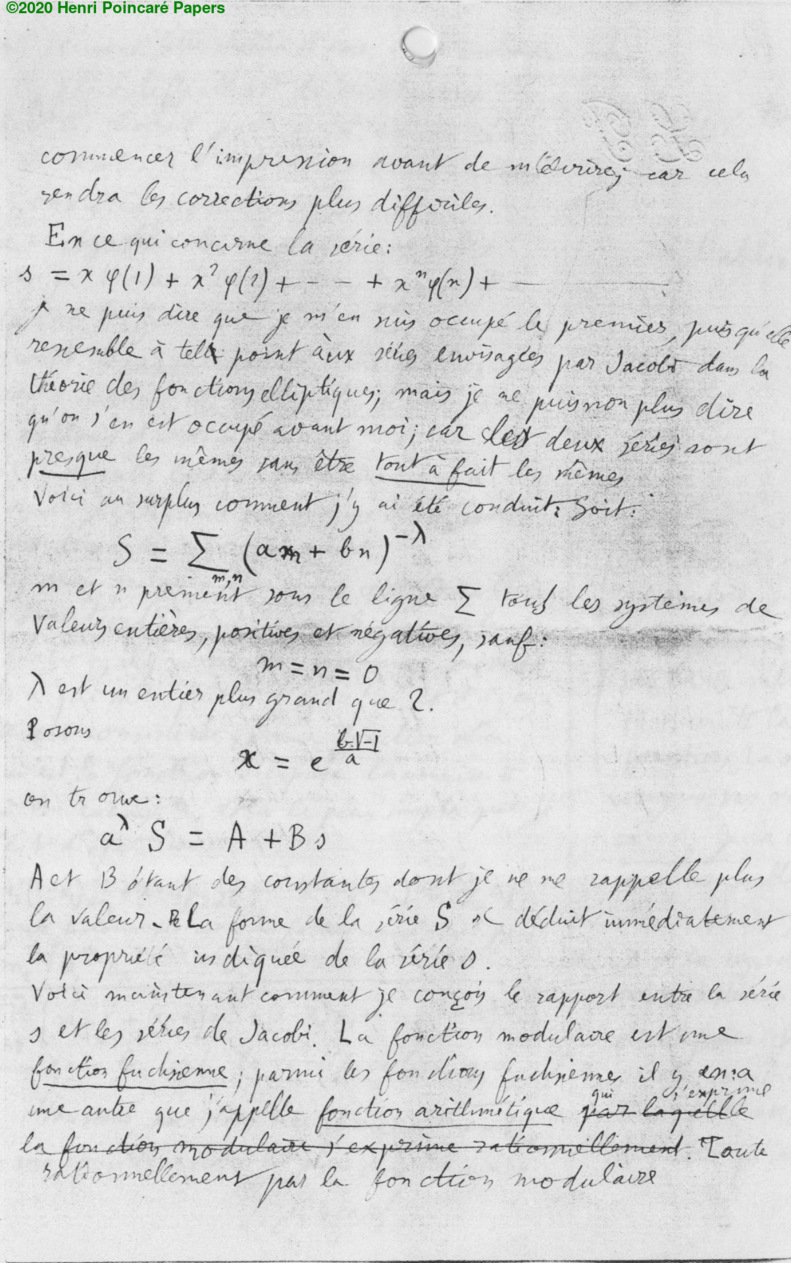 ©2020 Henri Poincaré Papers
commencer l'impression avant de m'écrire; car cela
rendra les corrections plus difficiles.
En ce qui concerne la série:
s = x φ(1) + x² φ(2) + - - - + xⁿ φ(n) + -
je ne puis dire que je m'en suis occupé le premier, puisqu'elle
ressemble à tel point aux séries envisagées par Jacobi dans la
théorie des fonctions elliptiques; mais je ne puis non plus dire
qu'on s'en est occupé avant moi; car les deux séries sont
presque les mêmes sans être tout à fait les mêmes
Voici au surplus comment j'y ai été conduit: Soit:
S = Σ_{m,n} (am + bn)^{-λ}
m et n prennent sous le signe Σ tous les systèmes de
valeurs entières, positives et négatives, sauf:
m = n = 0
λ est un entier plus grand que 2.
Posons
x = e^{b√-1/a}
on trouve:
a^λ S = A + B s
A et B étant des constantes dont je ne me rappelle plus
la valeur. La forme de la série S se déduit immédiatement
la propriété indiquée de la série s.
Voici maintenant comment je conçois le rapport entre la série
s et les séries de Jacobi. La fonction modulaire est une
fonction fuchsienne; parmi les fonctions fuchsiennes il y en a
une autre que j'appelle fonction arithmétique par laquelle qui s'exprime
la fonction modulaire s'exprime rationnellement. Toute
rationnellement par la fonction modulaire